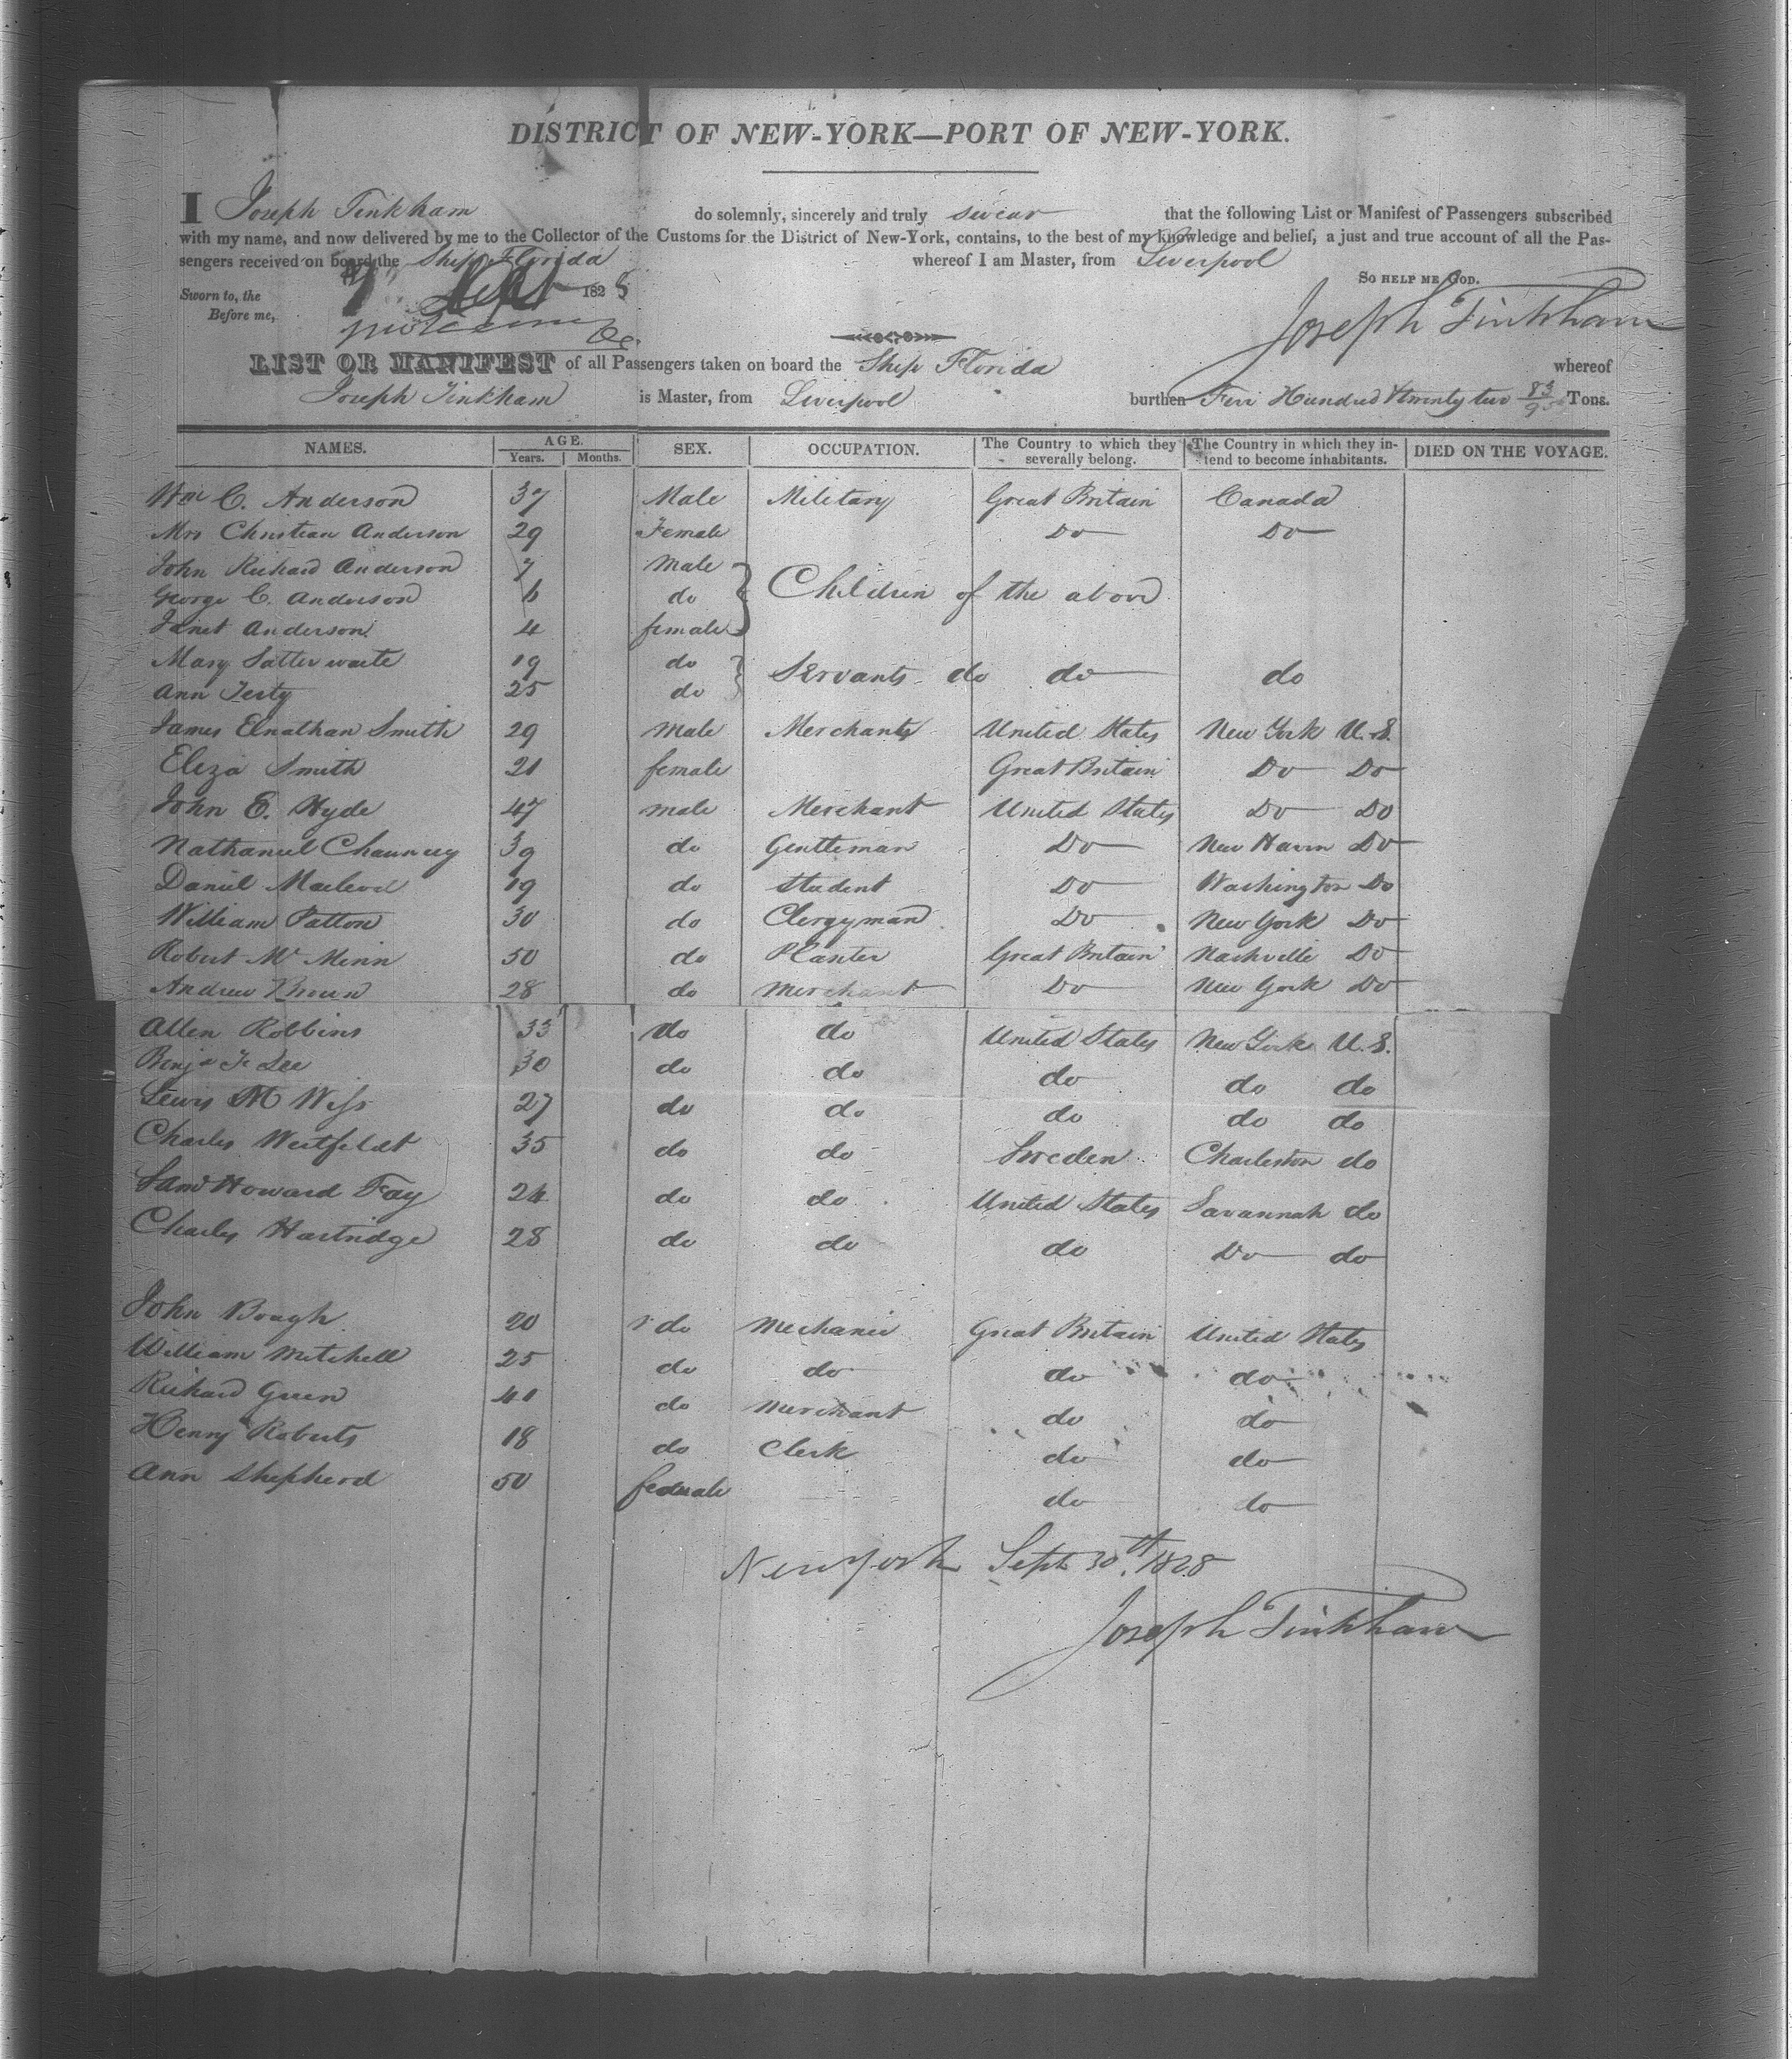 DISTRICT OF NEW-YORK—PORT OF NEW-YORK.
I Joseph Tinkham do solemnly, sincerely and truly swear that the following List or Manifest of Passengers subscribed
with my name, and now delivered by me to the Collector of the Customs for the District of New-York, contains, to the best of my knowledge and belief, a just and true account of all the Pas-
sengers received on board the Ship Florida whereof I am Master, from Liverpool
SO HELP ME GOD.
Sworn to, the Sept 1828
Before me,
Joseph Tinkham
LIST OR MANIFEST of all Passengers taken on board the Ship Florida whereof
Joseph Tinkham is Master, from Liverpool burthen Hundred & twenty two 83/95 Tons.
NAMES. AGE. SEX. OCCUPATION. The Country to which they severally belong. The Country in which they in-tend to become inhabitants. DIED ON THE VOYAGE.
Years. Months.
Wm C. Anderson 37 Male Military Great Britain Canada
Mrs Christian Anderson 29 Female Do Do
John Richard Anderson 7 Male
George C. Anderson 6 do Children of the above
Janet Anderson 4 female
Mary Satterwaite 19 do Servants do do do
Ann Testy 25 do
James Elnathan Smith 29 Male Merchants United States New York U.S.
Eliza Smith 21 female Great Britain Do Do
John E. Hyde 47 male Merchant United States Do Do
Nathaniel Chauncey 39 do Gentleman Do New Haven Do
Daniel Macleod 19 do Student Do Washington Do
William Patton 30 do Clergyman Do New York Do
Robert Mc Minn 50 do Planter Great Britain Nashville Do
Andrew Brown 28 do Merchant Do New York Do
Allen Robbins 33 do do United States New York U.S.
Benja F. Lee 30 do do do do do
Lewis M Wiss 27 do do do do do
Charles Westfeldt 35 do do Sweden Charleston do
Saml Howard Fay 24 do do United States Savannah do
Charles Hartridge 28 do do do Do do
John Bough 20 do Mechanic Great Britain United States
William Mitchell 25 do do do do
Richard Green 40 do Merchant do do
Henry Roberts 18 do Clerk do do
Ann Shepherd 50 female do do
New York Sept 30th 1828
Joseph Tinkham